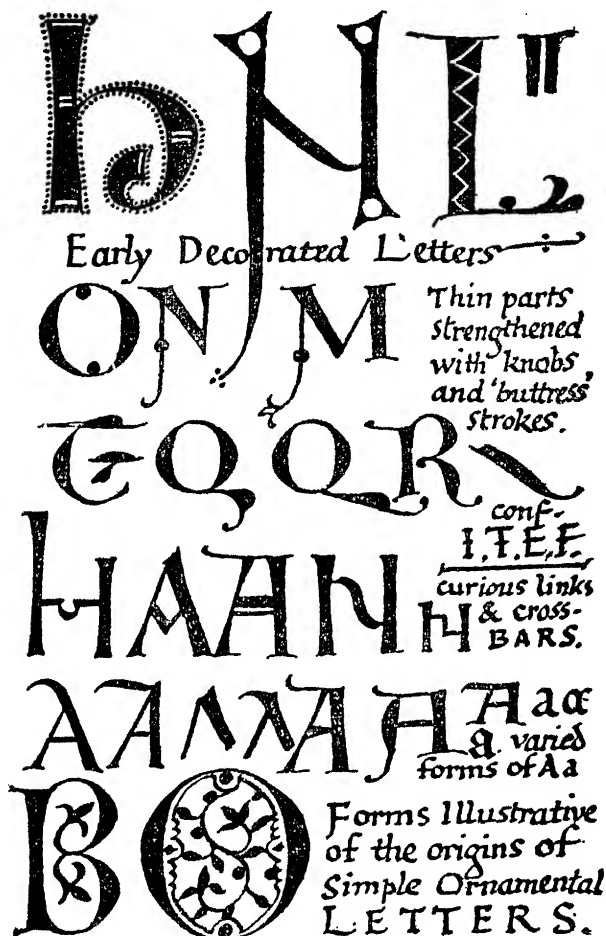 h N L "
Early Decorated Letters
O N M
Thin parts
strengthened
with knobs,
and 'buttress'
strokes.
E Q Q R
conf-
I.T.E.F.
H A A N
curious links
H & cross-
BARS.
A A A A A A A a α
a varied
forms of Aa
B O
Forms Illustrative
of the origins of
Simple Ornamental
LETTERS.